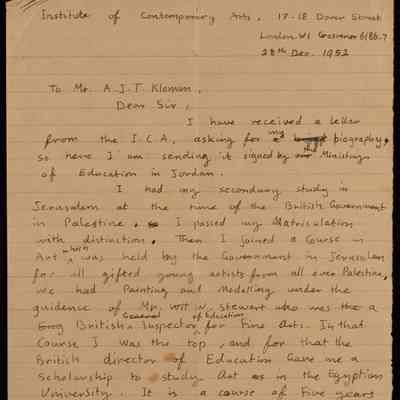 Institute of Contemporary Arts, 17-18 Dover Street
London W1 Grosvenor 6186-7
28th Dec. 1952
To Mr. A.J.T Kloman,
Dear Sir,
I have received a letter
from the I.C.A, asking for my biography,
so here I am sending it signed by the Ministry
of Education in Jordan.
I had my secondary study in
Jerusalem at the time of the British Government
in Palestine. I passed my Matriculation
with distinction. Then I joined a course in
Art which was held by the Government in Jerusalem
for all gifted young artists from all over Palestine,
we had Painting and Modelling under the
guidence of Mr. W. Stewart who was the
British General Inspector of Education for Fine Arts. In that
Course I was the top, and for that the
British director of Education Gave me a
Scholarship to study Art in the Egyptian
University. It is a course of Five years